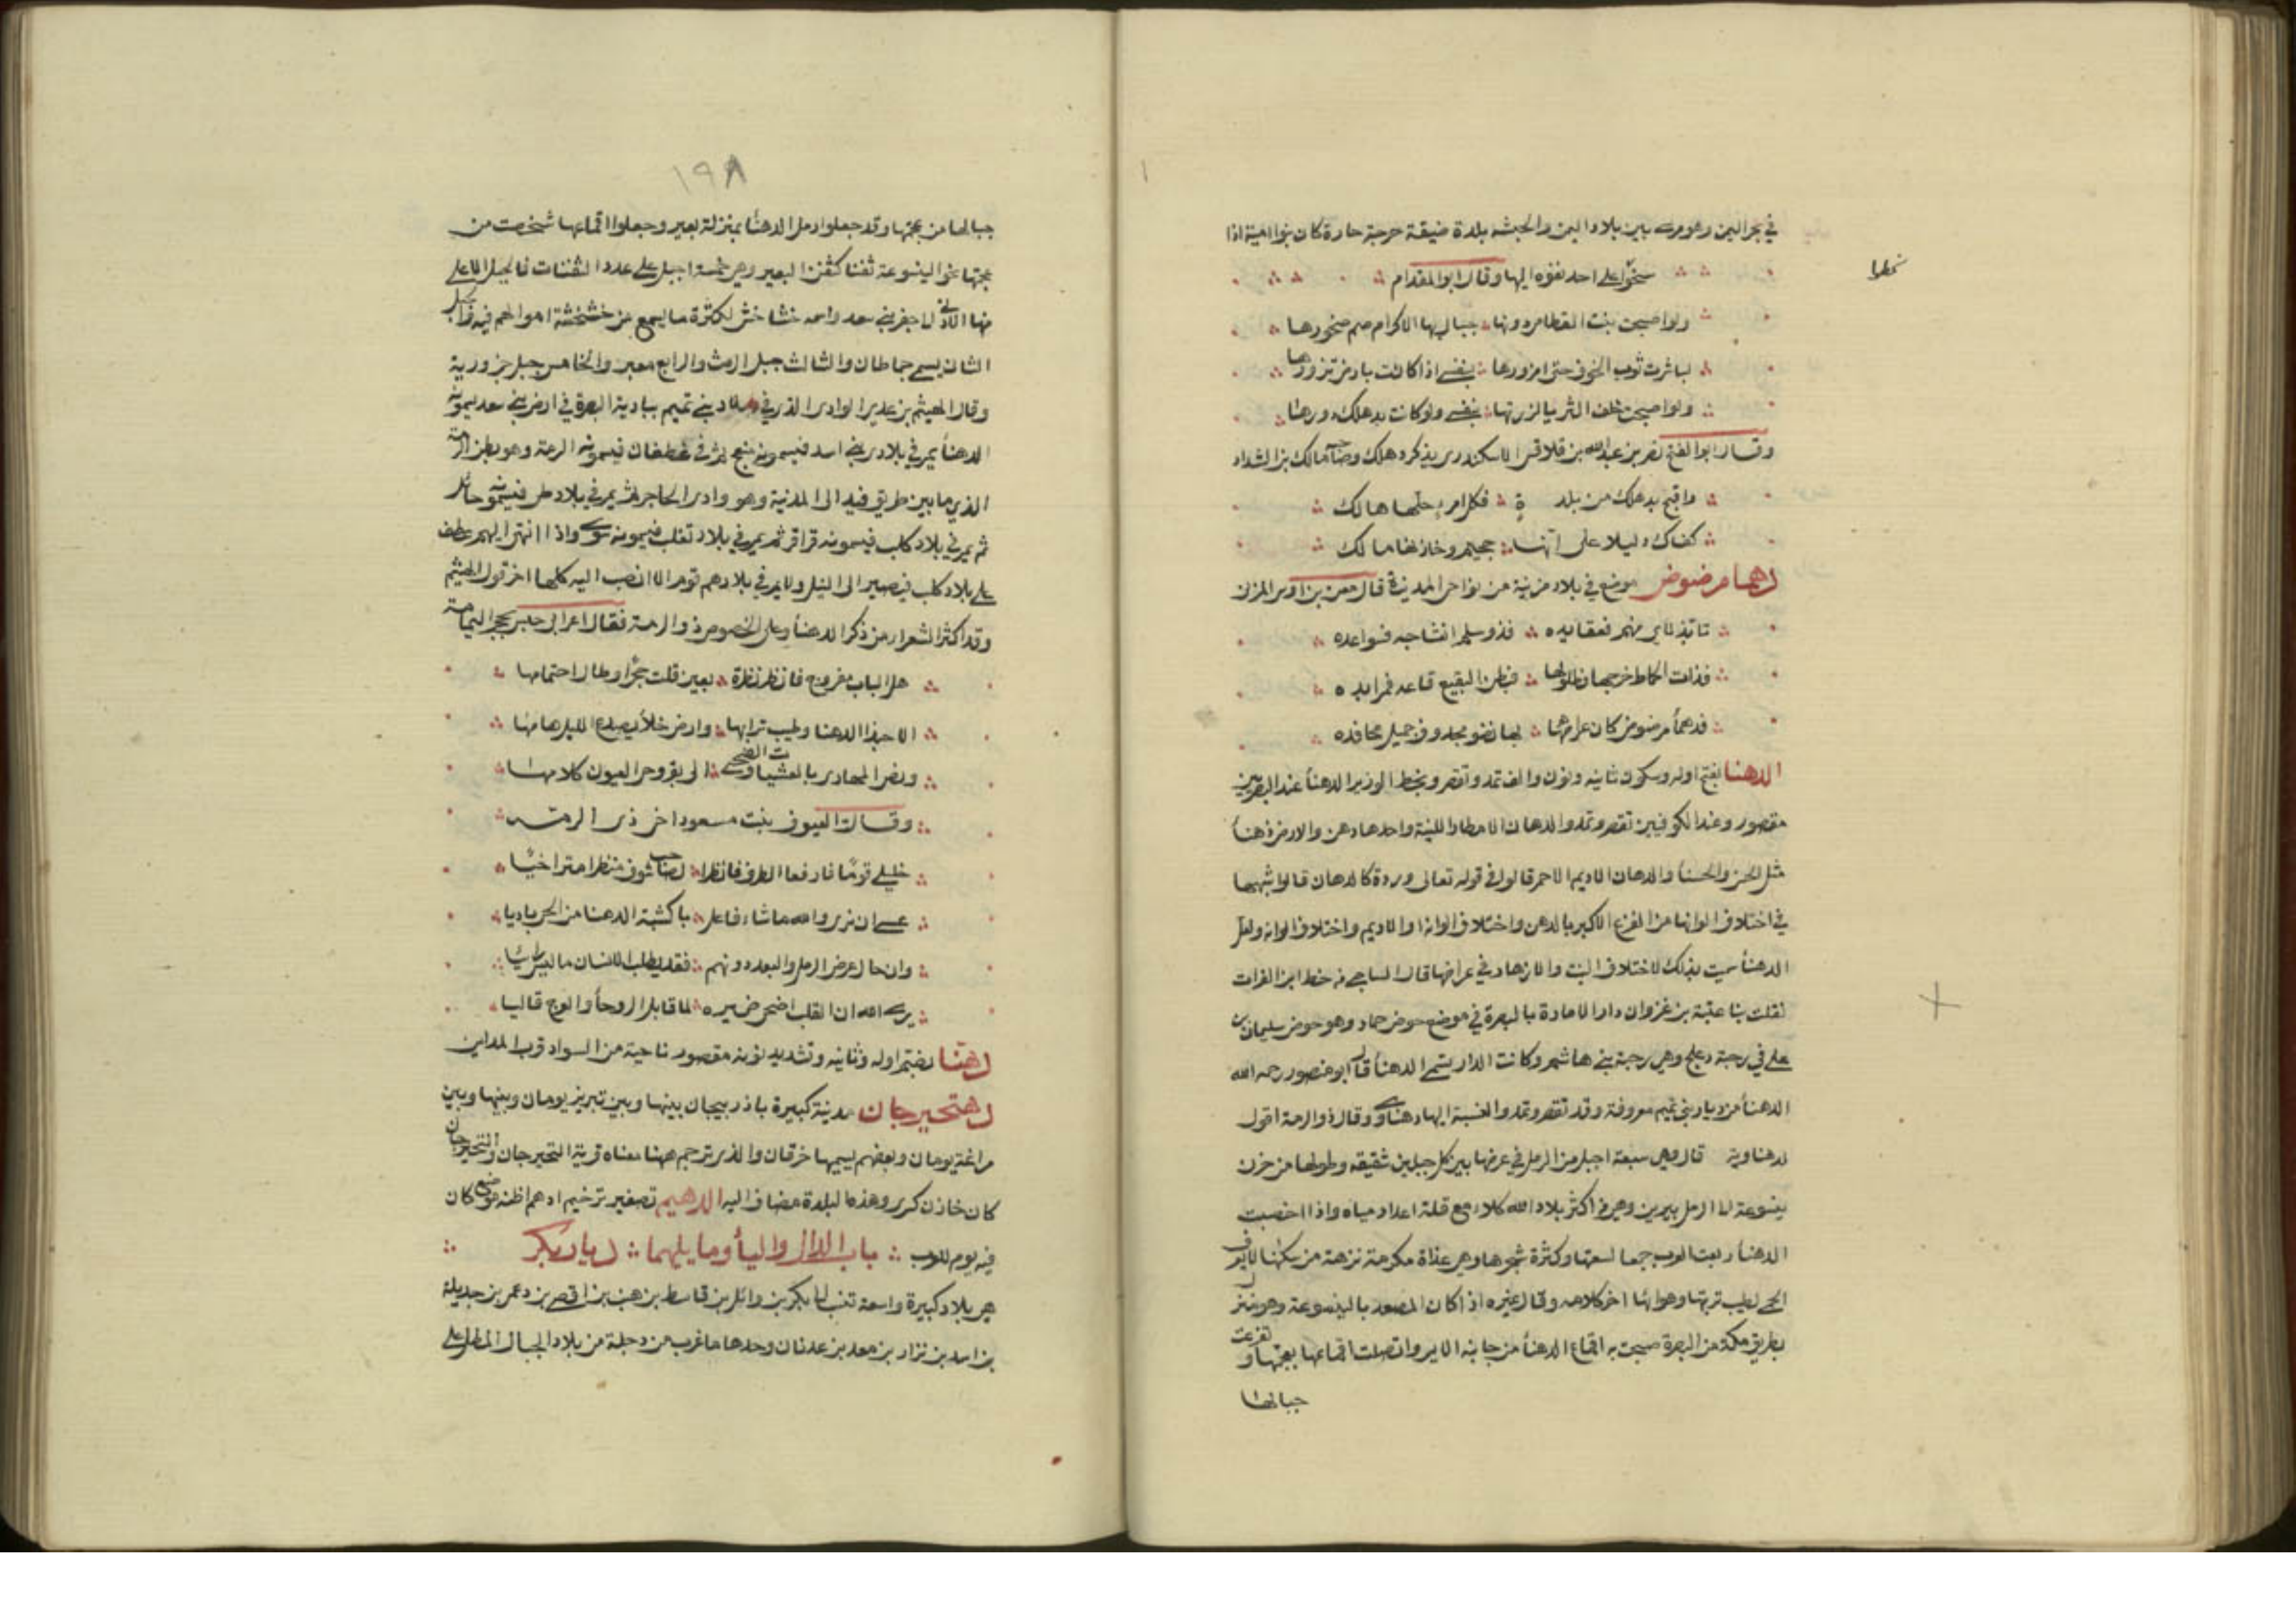 في بحر اليمن وهو مرسى بين بلاد اليمن والحبشه بلدة ضيقة حرجة حارة كان بنوا امية اذا
سخطوا
سخطوا على احد نفوه اليها وقال ابو المقدام
ولو اصبحت بنت القطامي دونها جبال بها الاكراد صم صخورها
لباشرت ثوب الخوف حتى ازورها بنفسي اذا كانت بارض تزورها
ولو اصبحت خلف الثريا لزرتها بنفسي ولو كانت بدهلك دورها
وقال ابو الفتح نصر بن عبدالله بن قلاقس الاسكندري يذكر دهلك وصاحبها مالك بن الشداد
واقبح بدهلك من بلدة فكل امرء حلها هالك
كفاك دليلا على انها جحيم وخازنها مالك
دهما مرضوض موضع في بلاد مزينة من نواحي المدينة قال معن بن اوس المزني
تابد لاي منهم فعقايده فذو سلم انشاجه فسواعده
فذات الحماط خرجها فطلولها فبطن البقيع قاعه فمرابده
فدهما مرضوض كان عراضها بها نضو محدوف جميل محافده
الدهنا بفتح اوله وسكون ثانيه ونون والف تمد وتقصر وبخط الوزير الدهنأ عند البصريين
مقصور وعند الكوفيين تقصر وتمد والدهان الامطار اللينة واحدها دهن والارض دهنأ
مثل الحسن والحسنأ والدهان الاديم الاحمر قالوا في قوله تعالى وردة كالدهان قالوا شبهها
في اختلاف الوانها من الفزع الاكبر بالدهن واختلاف الوانه او الاديم واختلاف الوانه ولعل
الدهنأ سميت بذلك لاختلاف النبت والازهار في عراضها قال الساجي من خط ابن الفرات
نقلت بنا عتبة بن غزوان دار الامارة بالبصرة في موضع حوض حماد وهو حوض سليمان بن
علي في رحبة دعلج وهي رحبة بني هاشم وكانت الدار تسمى الدهنأ قال ابو منصور رحمه الله
الدهنأ من ديار بني تميم معروفة وقد تقصر وتمد والنسبة اليها دهناوي وقال ذو الرمة اقول
لدهناوية قال وهي سبعة اجبل من الرمل في عرضها بين كل جبلين شقيقه وطولها من حزن
ينسوعة الى الرمل يبرين وهي من اكثر بلاد الله كلاء مع قلة اعداد مياه واذا اخصبت
الدهنأ ربعت العرب جمعا لسعتها وكثرة شجرها وهي عذاة مكرمة نزهة من سكنها لا يعرف
الحمى لطيب تربتها وهوائها اخر كلامه وقال غيره اذا كان المصعد بالينسوعة وهو منزل
بطريق مكة من البصرة صبحت به اقماع الدهنأ من جانبه الايسر واتصلت اقماعها بعجمتها وتفرعت
جبالها
١٩٨
جبالها من عجمتها وقد جعلوا رمل الدهنأ بمنزلة بعير وجعلوا اقماعها شخصت من
عجمتها نحو الينسوعة ثفنا كثفن البعير وهي خمسة اجبل على عدد الثفنات فالجبل الاعلى
منها الادنى الى حفر بني سعد واسمه خشاخش لكثرة ما يسمع من خشخشة اموالهم فيه والجبل
الثاني يسمى حماطان والثالث جبل الرمث والرابع معبر والخامس جبل حزورية
وقال الهيثم بن عدي الوادي الذي في بلاد بني تميم ببادية البصرة في ارض بني سعد يسمونه
الدهنأ يمر في بلاد بني اسد فيسمونه منعج ثم في غطفان فيسمونه الرمة وهو بطن الرمة
الذي ما بين طريق فيد الى المدينة وهو وادي الحاجر ثم يمر في بلاد طي فيسمونه حائل
ثم يمر في بلاد كلب فيسمونه قراقر ثم يمر في بلاد تغلب فيسمونه سوى واذا انتهى اليهم عطف
على بلاد كلب فيصير الى النيل ولا يمر في بلادهم قوم الا انصب اليه كلها اخر قول الهيثم
وقد اكثر الشعراء من ذكر الدهنأ وعلى الخصوص ذو الرمة فقال اعرابي حبس بحجر اليمامة
هل الباب مفروج فانظر نظرة بعين قلت حجرا وطال احتمامها
الا حبذا الدهنا وطيب ترابها وارض خلأ يصدع الليل هامها
ونص المهاري بالعشيات والضحى الى بقر وحي العيون كلامها
وقالت العيوف بنت مسعود اخي ذي الرمة
خليلي قوما فارفعا الطرف فانظرا لصاحب شوق منظرا متراخيا
عسى ان نرى والله ما شاء فاعل باكثبة الدهنا من الحي باديا
وان حال عرض الرمل والبعد دونهم فقد يطلب الانسان ما ليس رائيا
يرى الله ان القلب اضحى ضميره لما قابل الروحأ والعرج قاليا
دهنا بضم اوله وثانيه وتشديد نونه مقصور ناحية من السواد قرب المداين
دهنحيرجان مدينة كبيرة باذربيجان بينها وبين تبريز يومان وبينها وبين
مراغة يومان وبعضهم يسميها خرقان والذي ترجم ههنا معناه قرية النخيرجان والنخيرجان
كان خازن كسرى وهذه البلدة مضاف اليه الدهيم تصغير ترخيم ادهم اظنه موضع كان
فيه يوم للعرب باب الدال واليأ وما يليهما ديار بكر
هي بلاد كبيرة واسعة تنسب الى بكر بن وائل بن قاسط بن هنب بن افصى بن دعمي بن جديلة
بن اسد بن نزار بن معد بن عدنان وحدها ما غرب من دجلة من بلاد الجبال المطل على